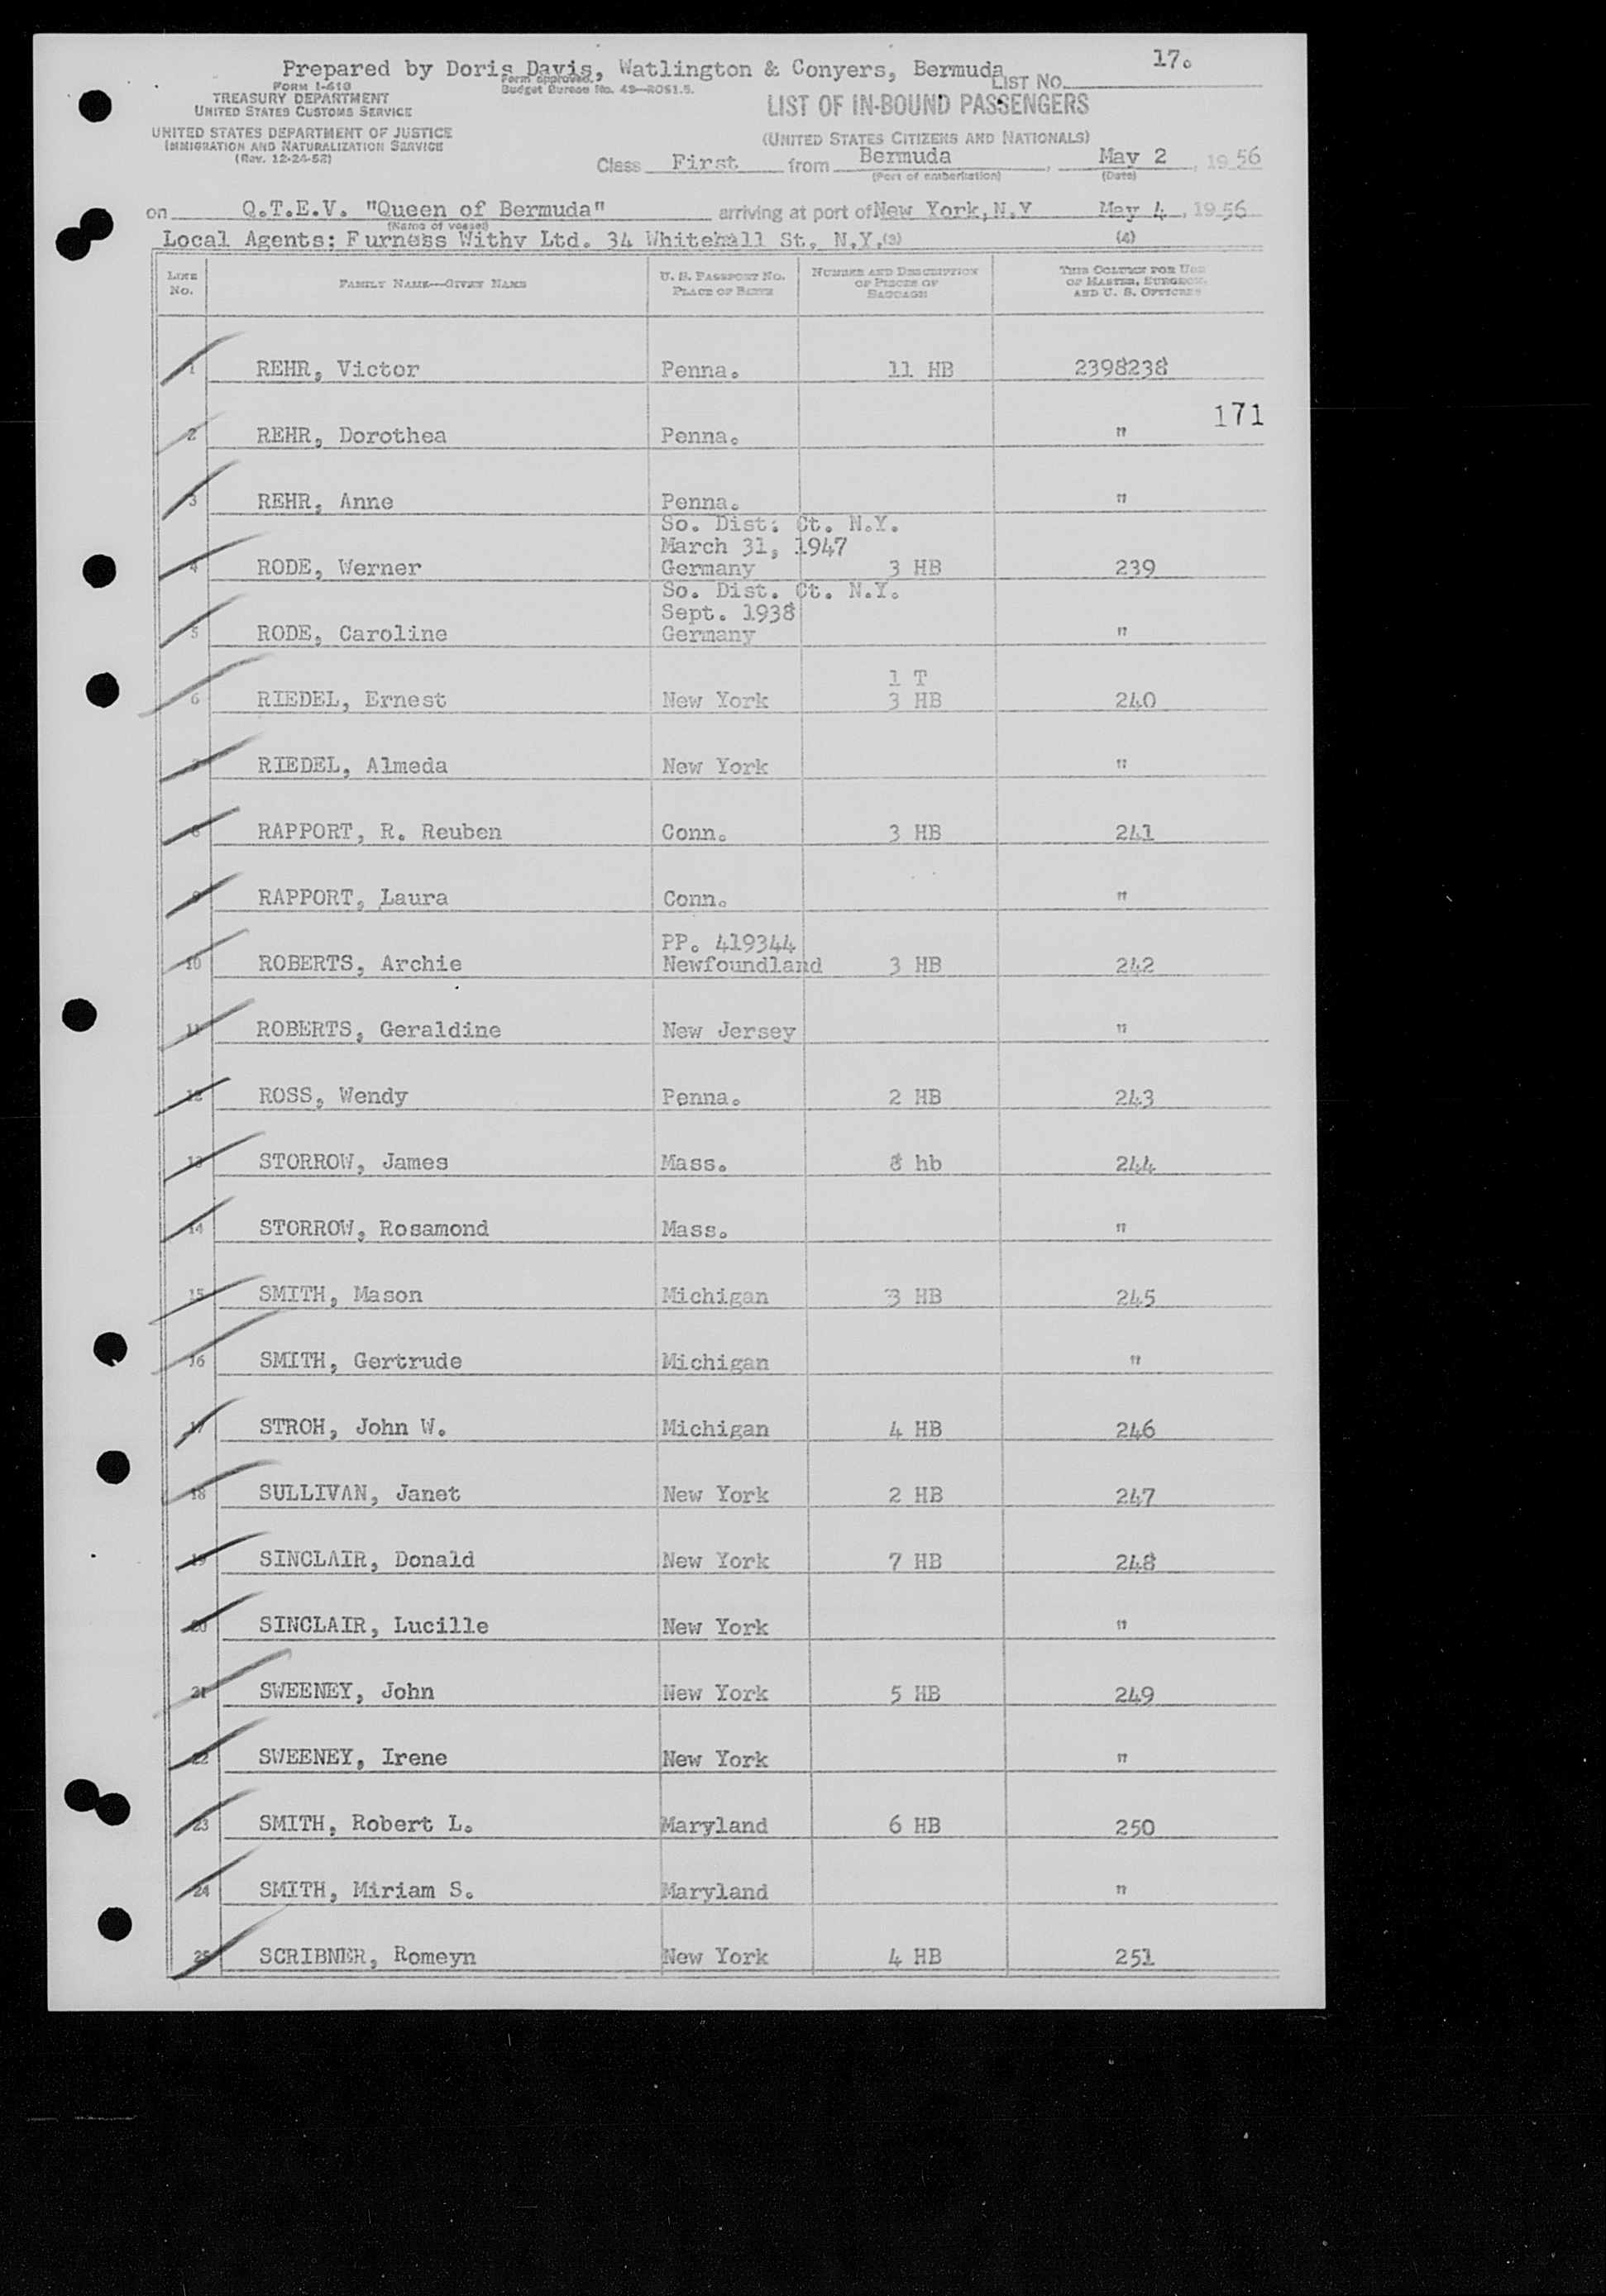 Prepared by Doris Davis, Watlington & Conyers, Bermuda
17.
FORM I-418
Form approved.
Budget Bureau No. 43—R051.5.
LIST NO.
TREASURY DEPARTMENT
UNITED STATES CUSTOMS SERVICE
LIST OF IN-BOUND PASSENGERS
UNITED STATES DEPARTMENT OF JUSTICE
IMMIGRATION AND NATURALIZATION SERVICE
(Rev. 12-24-52)
(UNITED STATES CITIZENS AND NATIONALS)
Class First from Bermuda, May 2, 1956
(Port of embarkation) (Date)
on Q.T.E.V. "Queen of Bermuda" arriving at port of New York, N.Y May 4, 1956
(Name of vessel)
Local Agents: Furness Withy Ltd. 34 Whitehall St. N.Y. (3) (4)
LINE No. FAMILY NAME—GIVEN NAME U. S. PASSPORT NO. PLACE OF BIRTH NUMBER AND DESCRIPTION OF PIECES OF BAGGAGE THIS COLUMN FOR USE OF MASTER, SURGEON, AND U. S. OFFICERS
1 REHR, Victor Penna. 11 HB 2398238
171
2 REHR, Dorothea Penna. "
3 REHR, Anne Penna. "
So. Dist. Ct. N.Y.
March 31, 1947
4 RODE, Werner Germany 3 HB 239
So. Dist. Ct. N.Y.
Sept. 1938
5 RODE, Caroline Germany "
1 T
6 RIEDEL, Ernest New York 3 HB 240
7 RIEDEL, Almeda New York "
8 RAPPORT, R. Reuben Conn. 3 HB 241
9 RAPPORT, Laura Conn. "
PP. 419344
10 ROBERTS, Archie Newfoundland 3 HB 242
11 ROBERTS, Geraldine New Jersey "
12 ROSS, Wendy Penna. 2 HB 243
13 STORROW, James Mass. 8 hb 244
14 STORROW, Rosamond Mass. "
15 SMITH, Mason Michigan 3 HB 245
16 SMITH, Gertrude Michigan "
17 STROH, John W. Michigan 4 HB 246
18 SULLIVAN, Janet New York 2 HB 247
19 SINCLAIR, Donald New York 7 HB 248
20 SINCLAIR, Lucille New York "
21 SWEENEY, John New York 5 HB 249
22 SWEENEY, Irene New York "
23 SMITH, Robert L. Maryland 6 HB 250
24 SMITH, Miriam S. Maryland "
25 SCRIBNER, Romeyn New York 4 HB 251